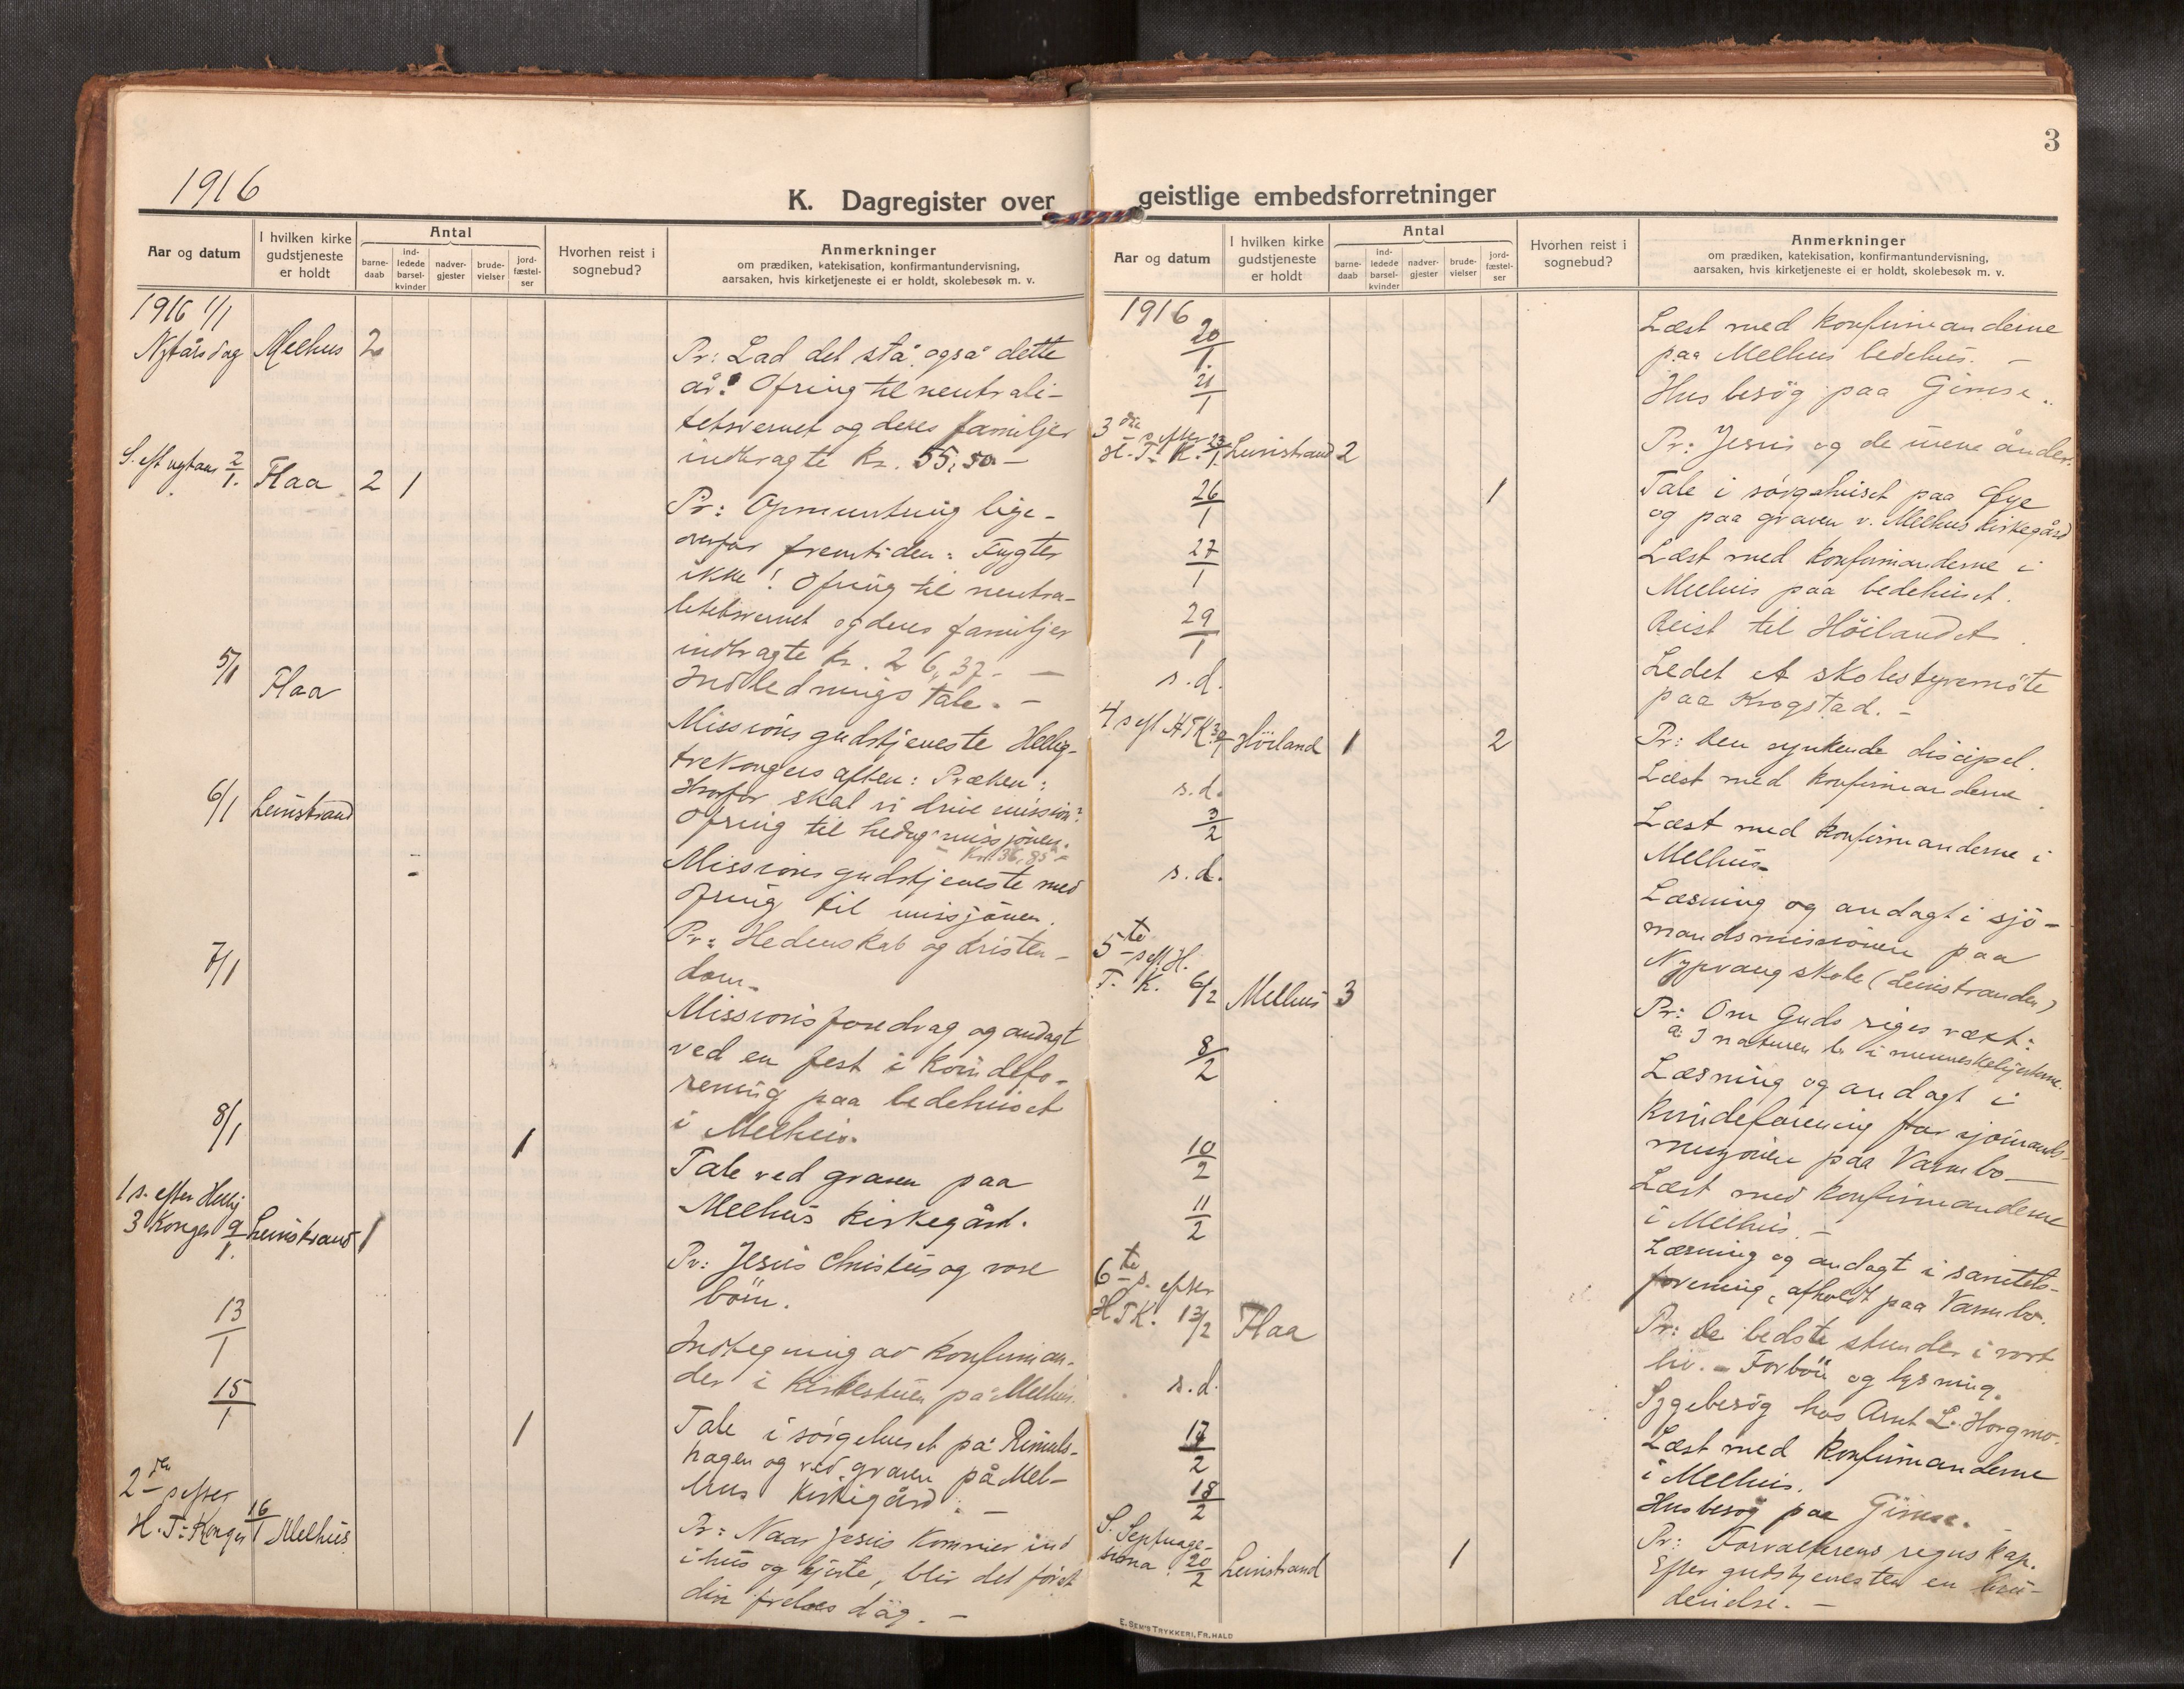 1916
K. Dagregister over
Aar og datum
I hvilken kirke
gudstjeneste
er holdt
Antal
barne-
daab
ind-
ledede
barsel-
kvinder
nadver-
gjester
brude-
vielser
jord-
fæstel-
ser
Hvorhen reist i
sognebud?
Anmerkninger
om prædiken, katekisation, konfirmantundervisning,
aarsaken, hvis kirketjeneste ei er holdt, skolebesøk m. v.
1916 1/1
Nytårsdag Melhus 2
Pr: Lad det stå også dette
år! Ofring til neutrali-
tetsvernet og deres familjer
indbragte kr. 55,50 -
S. eft nytaar 2/1. Flaa 2 1
Pr: Opmuntring lige-
overfor fremtiden: Frygter
ikke! Ofring til neutra-
litetsvernet og deres familjer
indbragte kr. 26,37 -
5/1 Flaa
Indledningstale. -
Missionsgudstjeneste Hellig-
trekongers aften: Præken:
Hvorfor skal vi drive mission?
Ofring til hedningmissjonen.
Kr. 36,85 -
6/1 Leinstrand
Missionsgudstjeneste med
ofring til missjonen.
Pr: Hedenskab og kristen-
dom.
7/1
Missionsforedrag og andagt
ved en fest i kvindefo-
rening paa bedehuset
i Melhus.
8/1 1
Tale ved graven paa
Melhus kirkegård.
1 s. efter Hellig
3 Konger 9/1. Leinstrand 1
Pr: Jesus Christus og vore
börn.
13/1
Indtegning av konfirman-
der i kirkestuen på Melhus.
15/1 1
Tale i sørgehuset på Rimuls-
hagen og ved graven på Mel-
hus kirkegård. -
2den s. efter
H. T. Konger 16/1 Melhus
Pr: Naar Jesus kommer ind
i hus og hjerte, blir det først
din frelses dag. -
3
geistlige embedsforretninger
Aar og datum
I hvilken kirke
gudstjeneste
er holdt
Antal
barne-
daab
ind-
ledede
barsel-
kvinder
nadver-
gjester
brude-
vielser
jord-
fæstel-
ser
Hvorhen reist i
sognebud?
Anmerkninger
om prædiken, katekisation, konfirmantundervisning,
aarsaken, hvis kirketjeneste ei er holdt, skolebesøk m. v.
1916
20/1.
Læst med konfirmanderne
paa Melhus bedehus. -
21/1
Husbesög paa Gimse.
3die s. efter
H. T. K. 23/1. Leinstrand 2
Pr: Jesus og de urene ånder.
26/1 1
Tale i sörgehuset paa Öye
og paa graven v. Melhus kirkegård
27/1
Læst med konfirmanderne i
Melhus paa bedehuset.
29/1
Reist til Höilandet.
s. d.
Ledet et skolestyremöte
paa Krogstad. -
4 s eft HTK 30/1 Höiland 1 2
Pr: Den synkende discipel.
s. d.
Læst med konfirmanderne.
3/2
Læst med konfirmanderne i
Melhus
s. d.
Læsning og andagt i sjö-
mandsmissionen paa
Nypvang skole (Leinstranden)
5te s eft H.
T. K. 6/2 Melhus 3
Pr: Om Guds riges vækst:
a: I naturen b: i menneskehjerterne.
8/2
Læsning og andagt i
kvindeforening for sjömands-
misjonen paa Varmbo -
10/2
Læst med konfirmanderne
i Melhus. -
11/2
Læsning og andagt i sanitets-
forening, afholdt paa Varmbo.
6te s. efter
HTK. 13/2 Flaa
Pr: De bedste stunder i vort
liv. - Forbön og lysning.
s. d.
Sygebesög hos Arnt L. Horgmo.
17/2
Læst med konfirmanderne
i Melhus.
18/2
Husbesög paa Gimse.
S. Septuage-
sima. 20/2 Leinstrand 1
Pr: Forvalterens regnskap.
Efter gudstjenesten en bru-
devielse. -
E. SEM'S TRYKKERI, FR.HALD